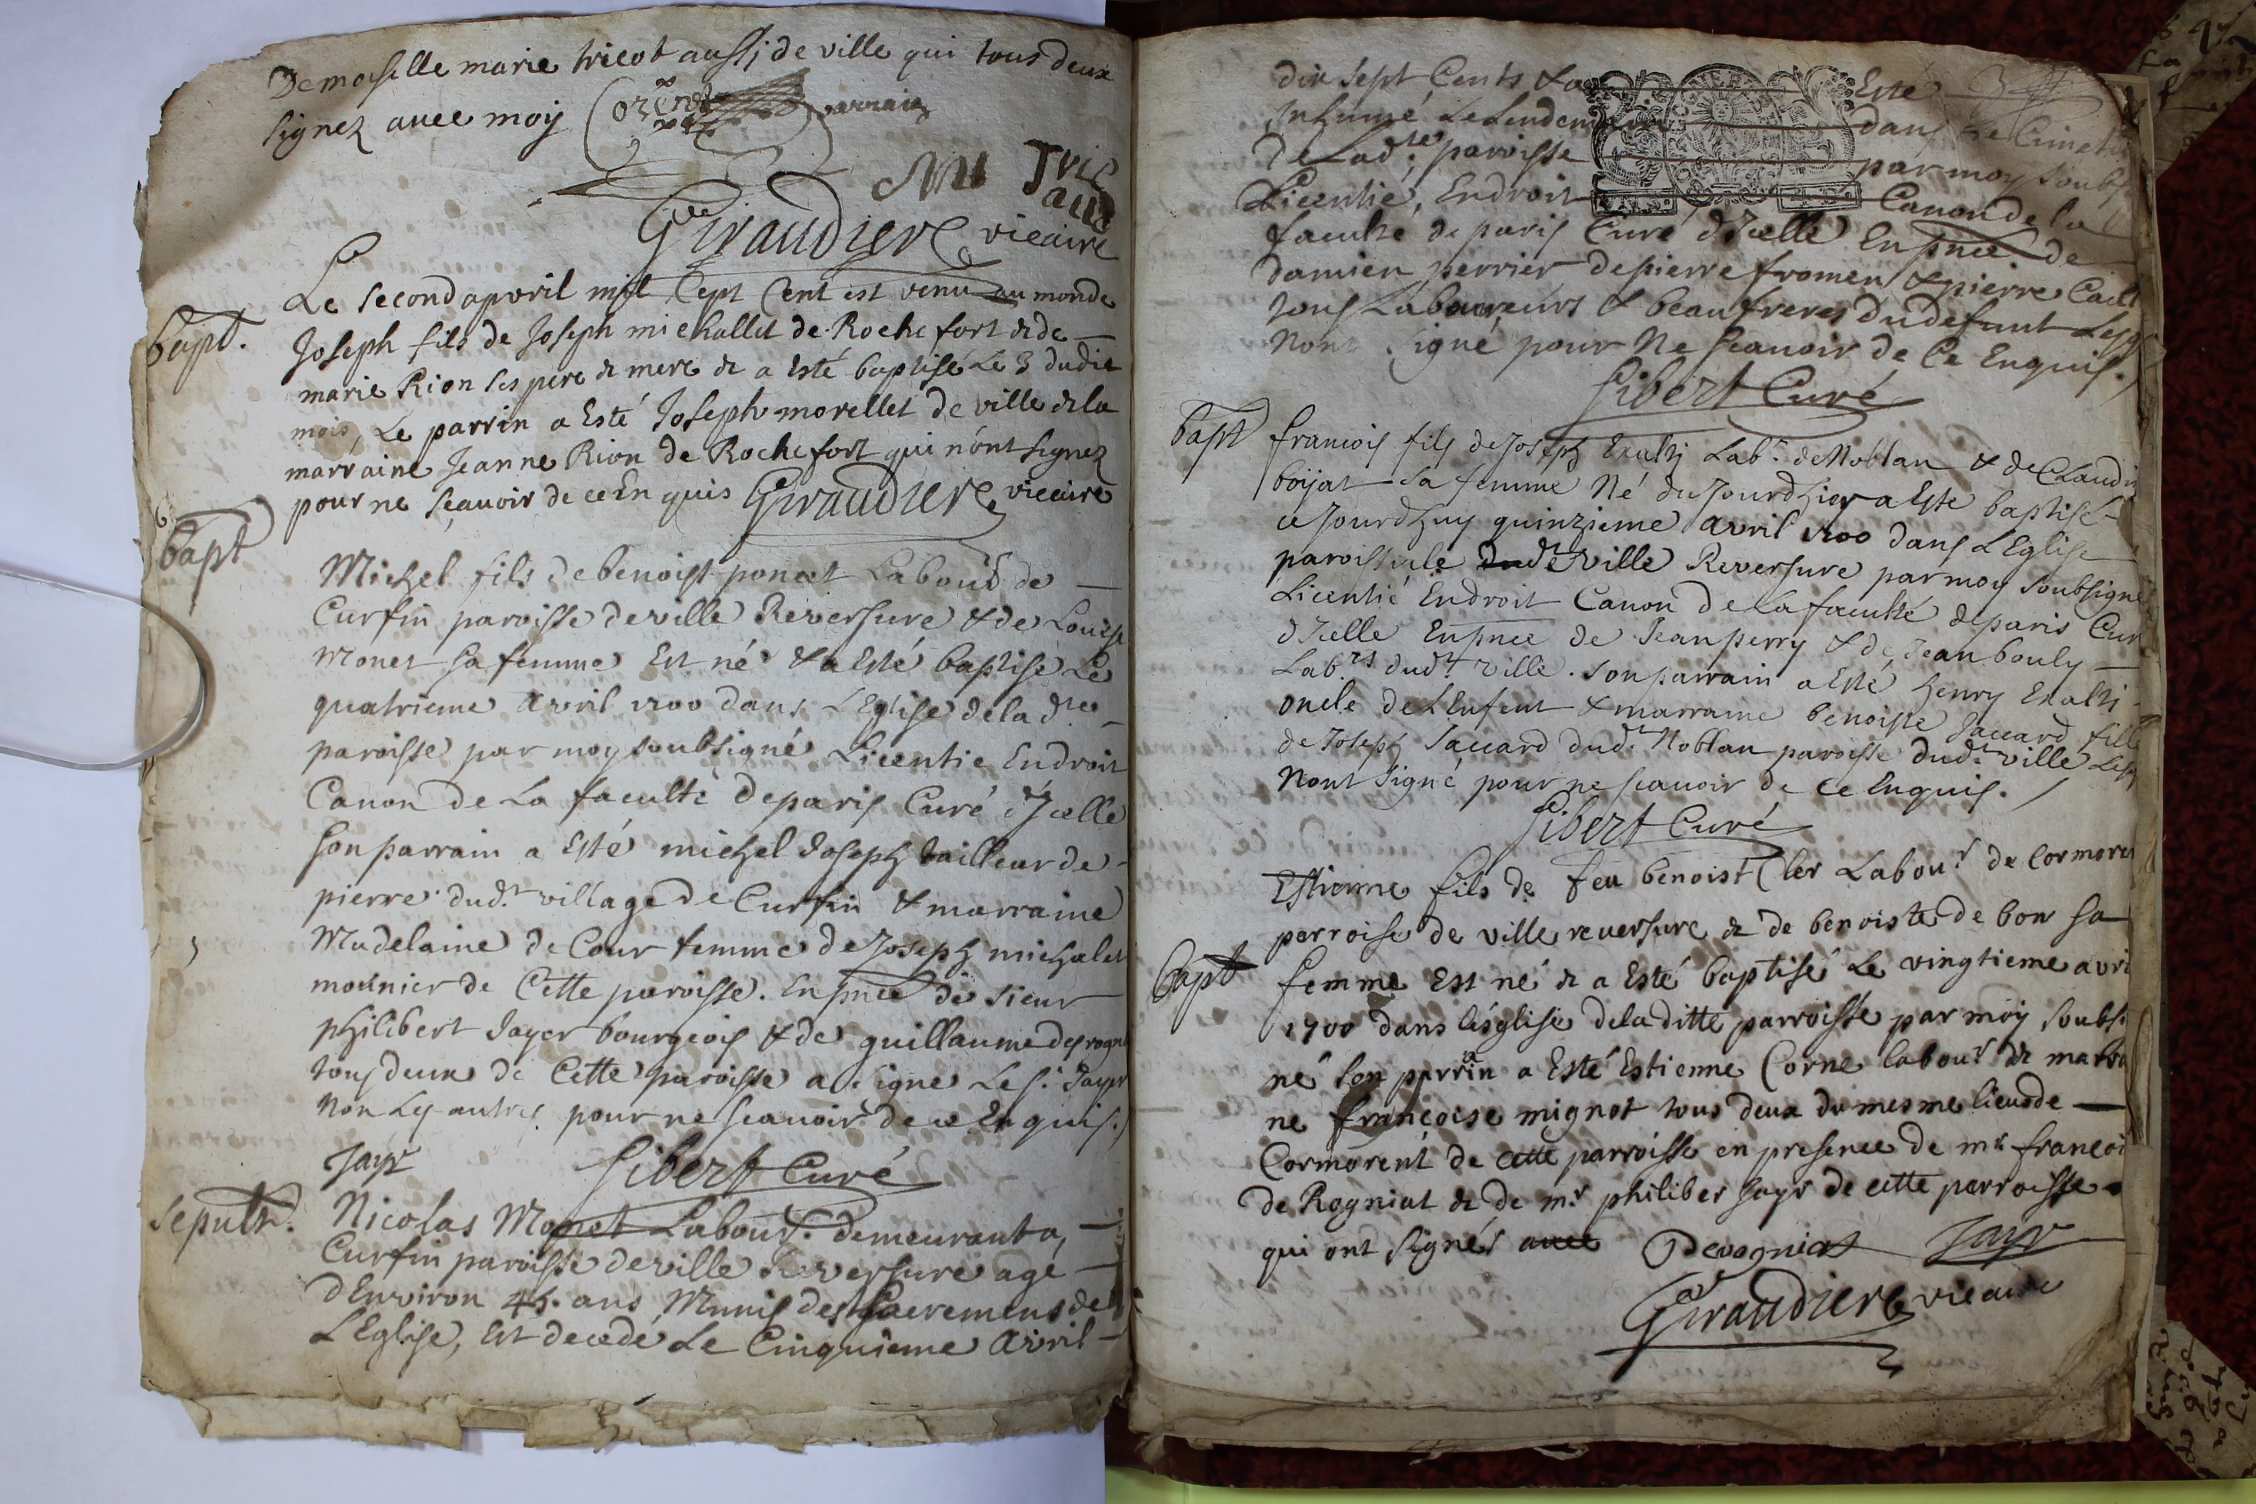 Demoiselle marie tricot aussi de ville qui tous deux
signez avec moy parrain
M Tric
aud
Giraudiere vicaire
bapt.
Le second apvril mil sept Cent est venu au monde
Joseph fils de Joseph michallet de Rochefort & de
marie Rion ses pere & mere & a esté baptisé Le 3 dudit
mois, Le parrin a Esté Joseph morellet de ville & la
marraine Jeanne Rion de Rochefort qui n'ont signez
pour ne sçavoir de ce Enquis Giraudiere vicaire
bapt
Michel fils de benoist poncet Labour de
Curfin paroisse deville Reversure & de Louise
Monet sa femme Est né & a Esté baptisé Le
quatrieme avril 1700 dans L'Eglise de la dte
paroisse par moy soubsigné Licentie Endroit
Canon de La faculté de paris Curé d'Icelle
son parrain a Esté michel Joseph tailleur de
pierre dud.t village de Curfin & marraine
Madelaine de Cour femme de Joseph michalet
mounier de Cette paroisse. En pnce de sieur
philibert Jayer bourgeois & de guillaume derogni
tous deux de Cette paroisse a signe Le sr Jayr
Non Les autres pour ne scavoir de ce Enquis.
Jayr Gibert Curé
sepultr.
Nicolas Monet Labour. demeurant a
Curfin paroisse deville Reversure agé
d'Environ 45. ans Munis des sacremens de
L'Eglise, Est decedé Le Cinquieme Avril
dix sept Cents & a Esté
Inhumé Le Lendemain dans Le Cimeti
De Ladte paroisse par moy soubs
Licentié, Endroit Canon de la
faculté de paris Curé d'Icelle En pnce de
damien perrier de pierre fromen & pierre Cail
tous Laboureurs & beaufreres du defunt Lesq
Nont signé pour Ne scavoir de Ce Enquis.
Gibert Curé
bapt
francois fils de Joseph Exalti Labr. de Noblan & de CLaudi
boijat sa femme Né du Jourdhier a Este baptisé
ce Jourdhuy quinzieme avril 1700 dans L'Eglise
paroissiale dudt ville Reversure par moy soubsigné
Licentié Endroit Canon de La faculté de paris Cur
d'Icelle En pnce de Jean perry & de Jean bouly
Lab.rs dud.t ville. son parrain a Esté henry Exalti
oncle de L'Enfent & marraine benoiste Jaccard fille
de Joseph Jaccard dud.t Noblan paroisse dud.t ville Lesq
Nont signé pour ne scavoir de Ce Enquis.
Gibert Curé
bapt
Estienne fils de feu benoist Cler Labour de Cormoren
parroise de ville reversure & de benoiste de bon sa
femme Est né & a Esté baptisé Le vingtieme avri
1700 dans L'église de la ditte parroisse par moy soubsi
né son parrain a Esté Estienne Corne labour & marrai
ne françoise mignot tous deux du mesme lieu de
Cormorent de cette parroisse en presence de mr françoi
de Rogniat & de mr philiber Jayr de cette parroisse
qui ont signés avec Derogniat Jayr
Giraudiere vicaire